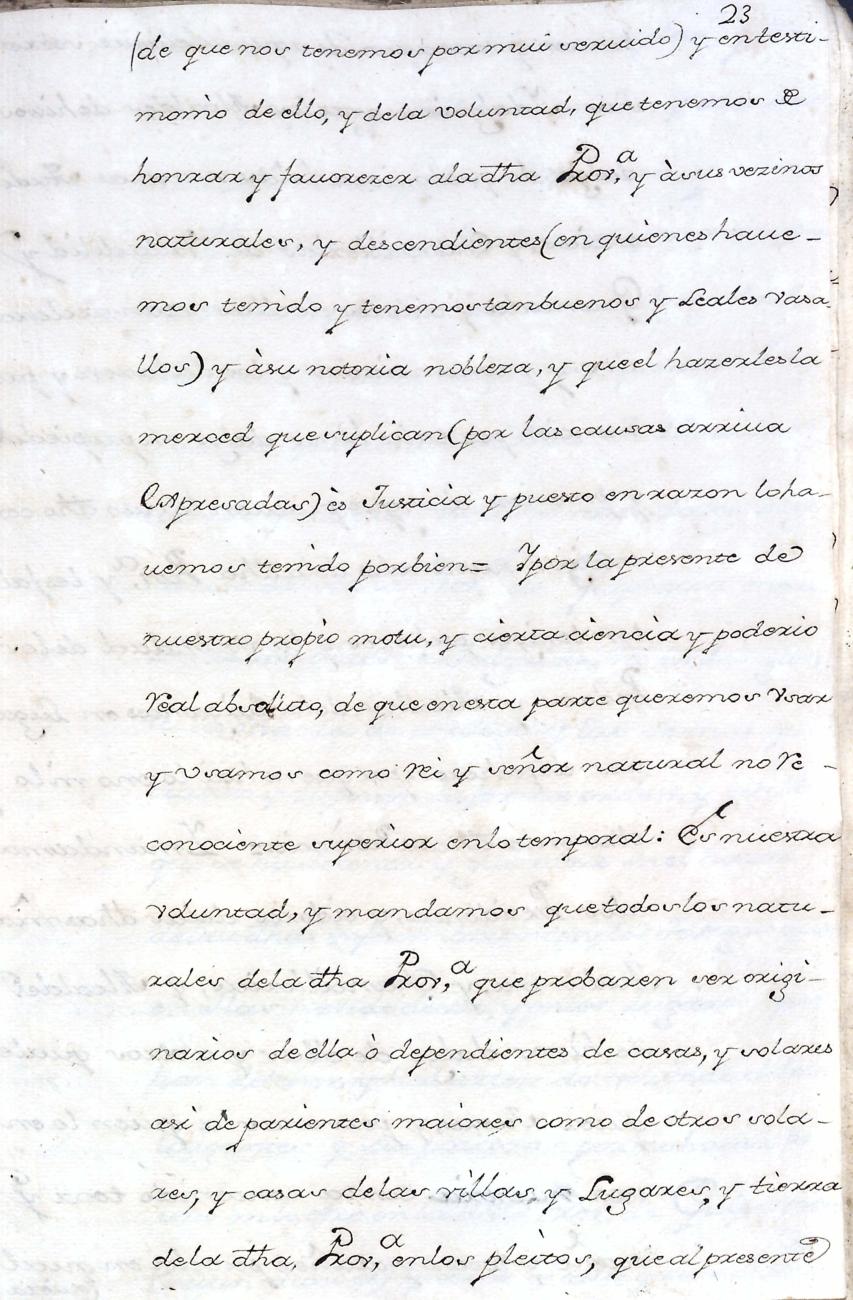 23
(de que nos tenemos por mui seruido) y en testi-
monio de ello, y de la voluntad, que tenemos de
honrar y fauorezer a la dha Prov,ª y à sus vezinos
naturales, y descendientes (en quienes haue-
mos tenido y tenemos tan buenos y Leales vasa-
llos) y à su notoria nobleza, y que el hazerles la
merced que suplican (por las causas arriua
Expresadas) ès Justicia y puesto en razon lo ha-
uemos tenido por bien= Y por la presente de
nuestro propio motu, y cierta ciencia y poderio
Real absoluto, de que en esta parte queremos Vsar
y Vsamos como Rei y señor natural no Re-
conociente superior en lo temporal: Es nuestra
voluntad, y mandamos que todos los natu-
rales de la dha Prov,ª que probaren ser origi-
narios de ella ò dependientes de casas, y solares
asi de parientes maiores como de otros sola-
res, y casas de las villas, y Lugares, y tierra
de la dha. Prov,ª en los pleitos, que al presente